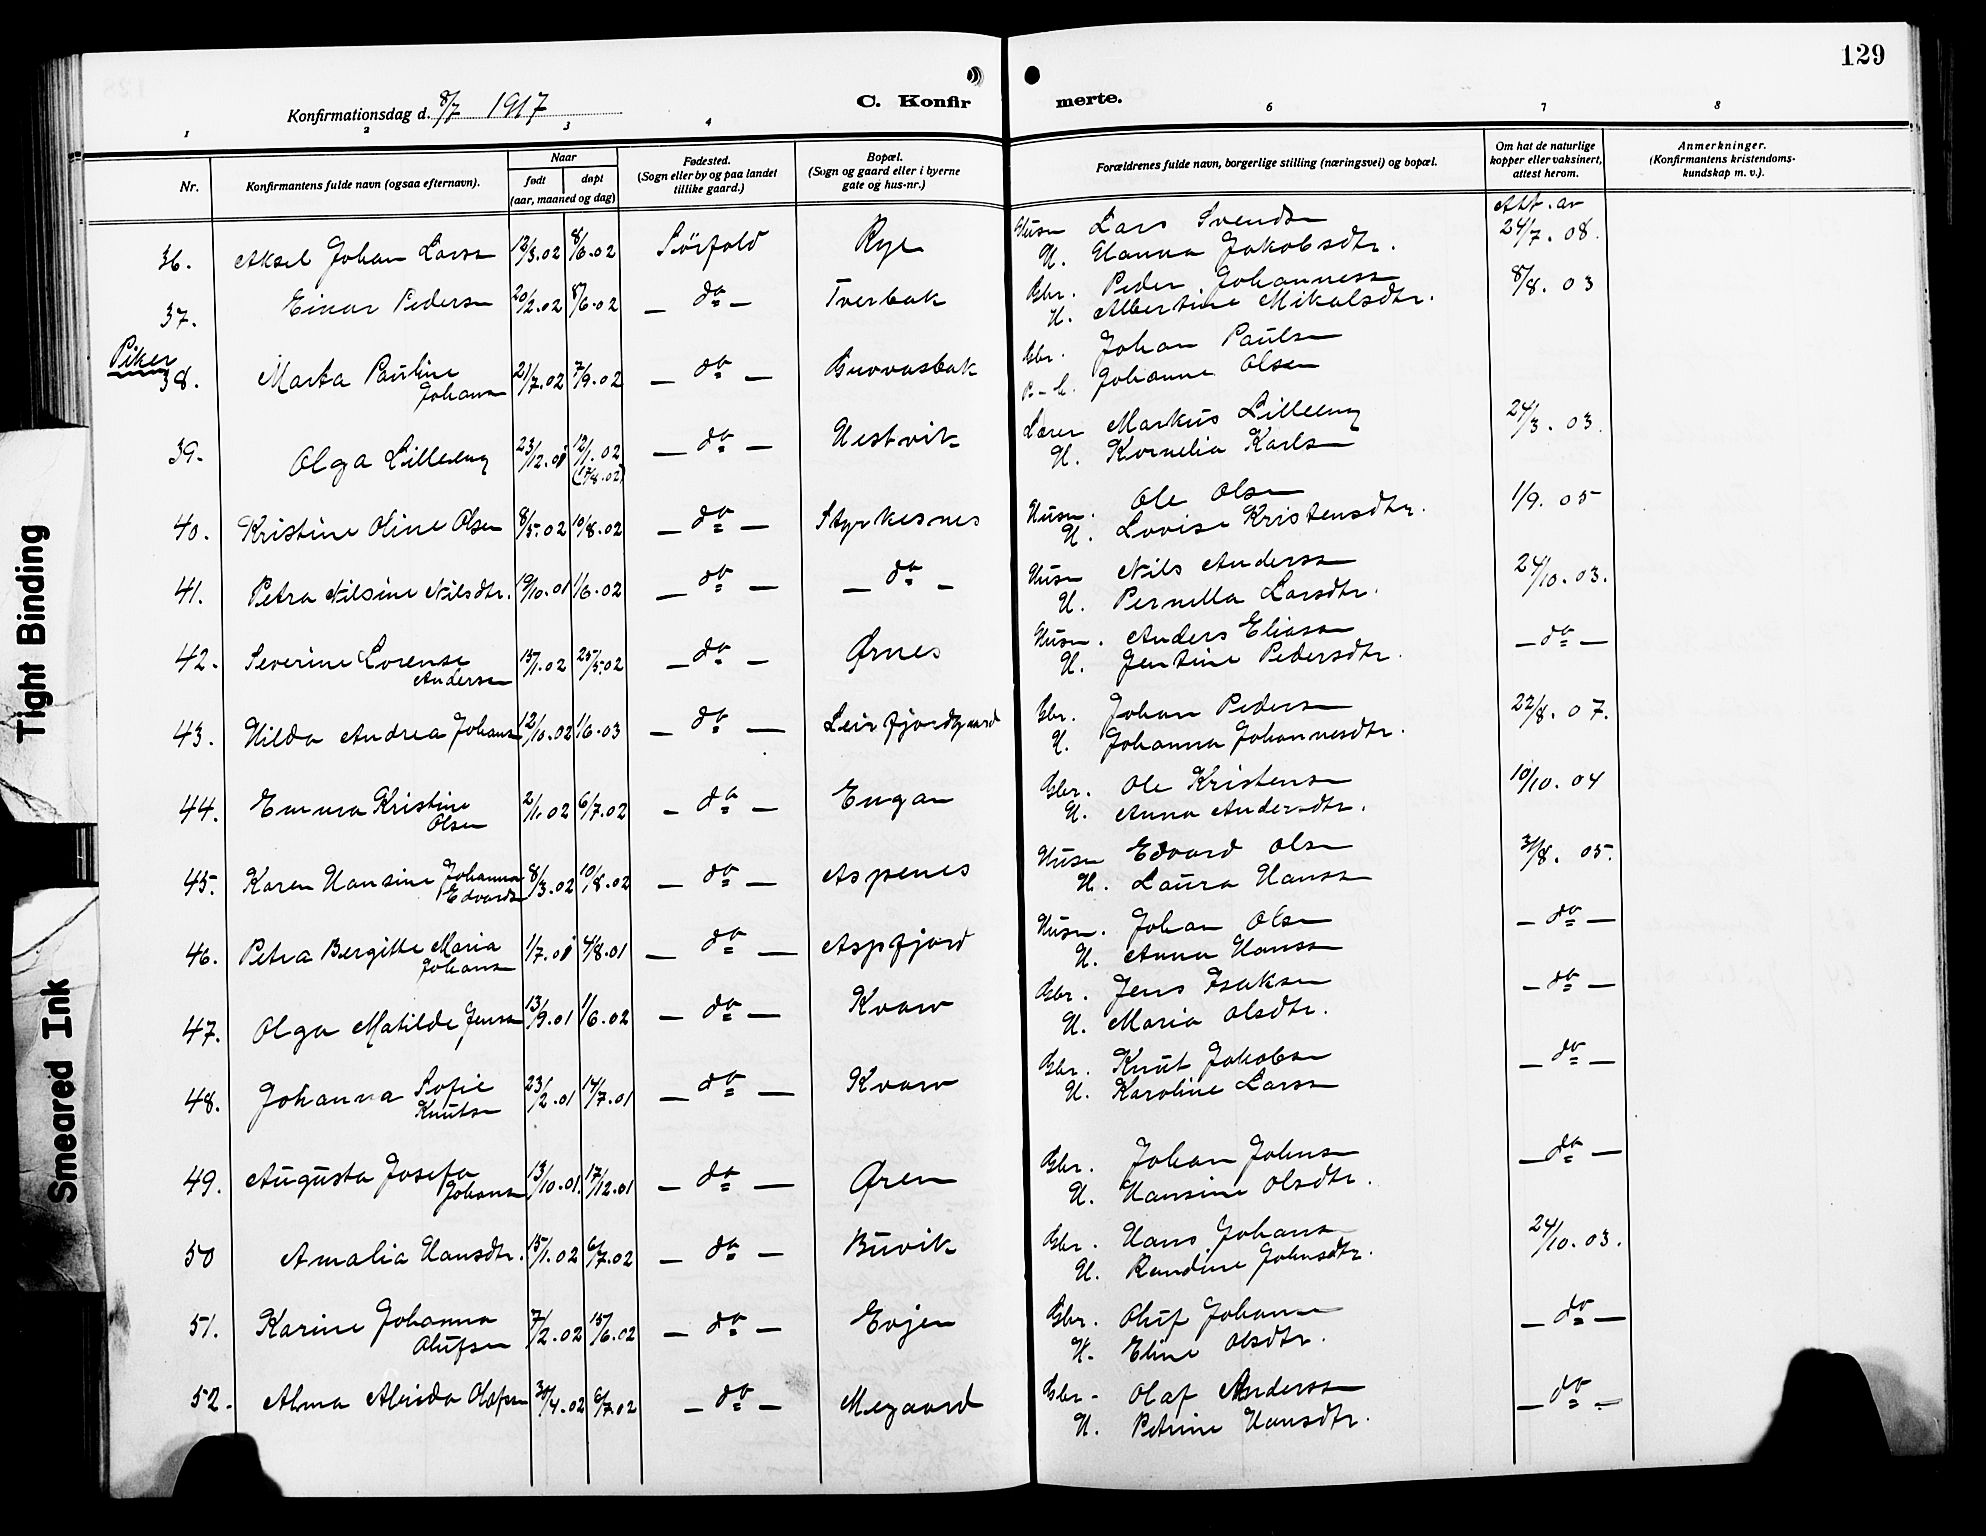 129
C. Konfirmerte.
Konfirmationsdag d. 8/7 1917
1 2 3 4 6 7 8
Nr. Konfirmantens fulde navn (ogsaa efternavn). Naar født døpt (aar, maaned og dag) Fødested. (Sogn eller by og paa landet tillike gaard.) Bopæl. (Sogn og gaard eller i byerne gate og hus-nr.) Forældrenes fulde navn, borgerlige stilling (næringsvei) og bopæl. Om hat de naturlige kopper eller vaksinert, attest herom. Anmerkninger. (Konfirmantens kristendoms-kundskap m. v.).
36. Aksel Johan Larsn 13/3.02 8/6.02 Sörfold Rye Husm Lars Svendsn Att. av 24/7. 08.
H. Hanna Jakobsdtr.
37. Einar Pedersn 20/2.02 8/6.02 — do — Tverbak Gbr. Peder Johannessn 8/8. 03
H. Albertine Mikalsdtr.
Piker
38. Marta Pauline 21/7.02 7/9.02 — do — Gbr. Johan Paulsn
Johansn Johanne Olsen
39. Olga Lilleeng 23/12.01 12/1.02 — do — Nestvik Lærer Markus Lilleeng 24/3. 03.
(17/8.02) H. Kornelia Karlsn
40. Kristine Oline Olsen 8/5.02 10/8.02 — do — Styrkesnes Husm. Ole Olsn 1/9. 05
H. Lovise Kristensdtr.
41. Petra Nilsine Nilsdtr. 19/10.01 1/6.02 — do — — do — Husm Nils Anderssn 24/10. 03.
H. Pernella Larsdtr.
42. Severine Lorense 15/1.02 25/5.02 — do — Ørnes Husm. Anders Eliassn — do —
Andersen H. Jentine Pedersdtr.
43. Hilda Andrea Johansn 12/10.02 1/6.03 — do — Leirfjordgaard Gbr. Johan Pedersn 22/8. 07.
H. Johanna Johannesdtr.
44. Emma Kristine 2/1.02 6/7.02 — do — Engan Gbr. Ole Kristensn 10/10. 04
Olsen H. Anna Andersdtr.
45. Karen Hansine Johanna 8/3.02 10/8.02 — do — Aspenes Husm Edvard Olsn 31/8. 05.
Edvardsn H. Laura Hanssn
46. Petra Bergitte Maria 1/7.01 4/8.01 — do — Aspfjord Husm. Johan Olsn — do —
Johansn H. Anna Hanssn
47. Olga Matilde Jensn 13/9.01 1/6.02 — do — Kvarv Gbr. Jens Isaksn — do —
H. Maria Olsdtr.
48. Johanna Sofie 23/2.01 14/7.01 — do — Kvarv Gbr. Knut Jakobsn — do —
Knutsn H. Karoline Larsn
49. Augusta Josefa 13/10.01. 17/12.01 — do — Øren Gbr. Johan Johnsn — do —
Johansn H. Hansine Olsdtr.
50 Amalia Hansdtr. 15/1.02 6/7.02 — do — Buvik Gbr. Hans Johansn 24/10. 03.
H. Randine Johnsdtr.
51. Karine Johanna 7/2.02 15/6.02 — do — Evjen Gbr. Oluf Johansn — do —
Olufsen H. Eline Olsdtr.
52. Alma Alvida Olafsen 30/4.02 6/7.02 — do — Megaard Gbr. Olaf Anderssn — do —
H. Petrine Hansdtr.
Tight Binding
Smeared Ink